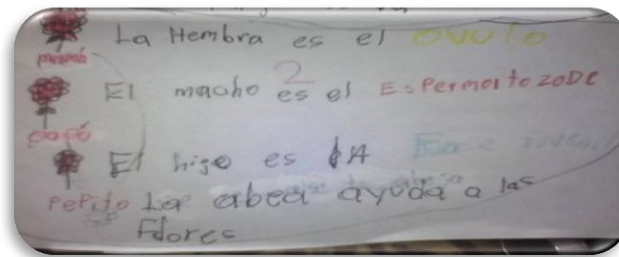 La Hembra es el OVULO
mamá
2
El macho es el EsPermaitozoDe
papá
El hijo es LA
PePito La abea ayuda a las
Flores